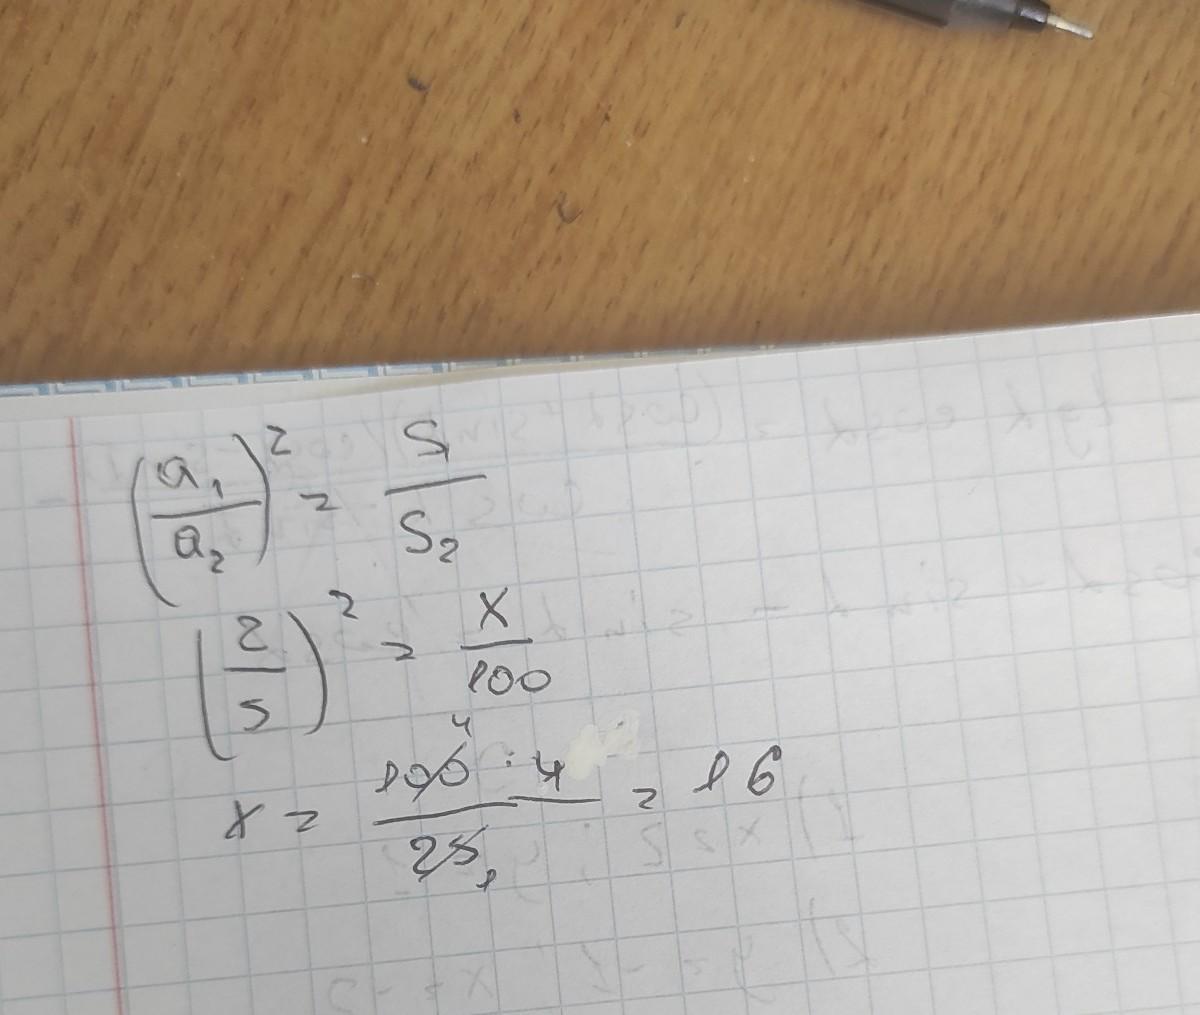 (a₁/a₂)² = S₁/S₂
(2/5)² = x/100
x = 100 4 · 4 / 25 1 = 16